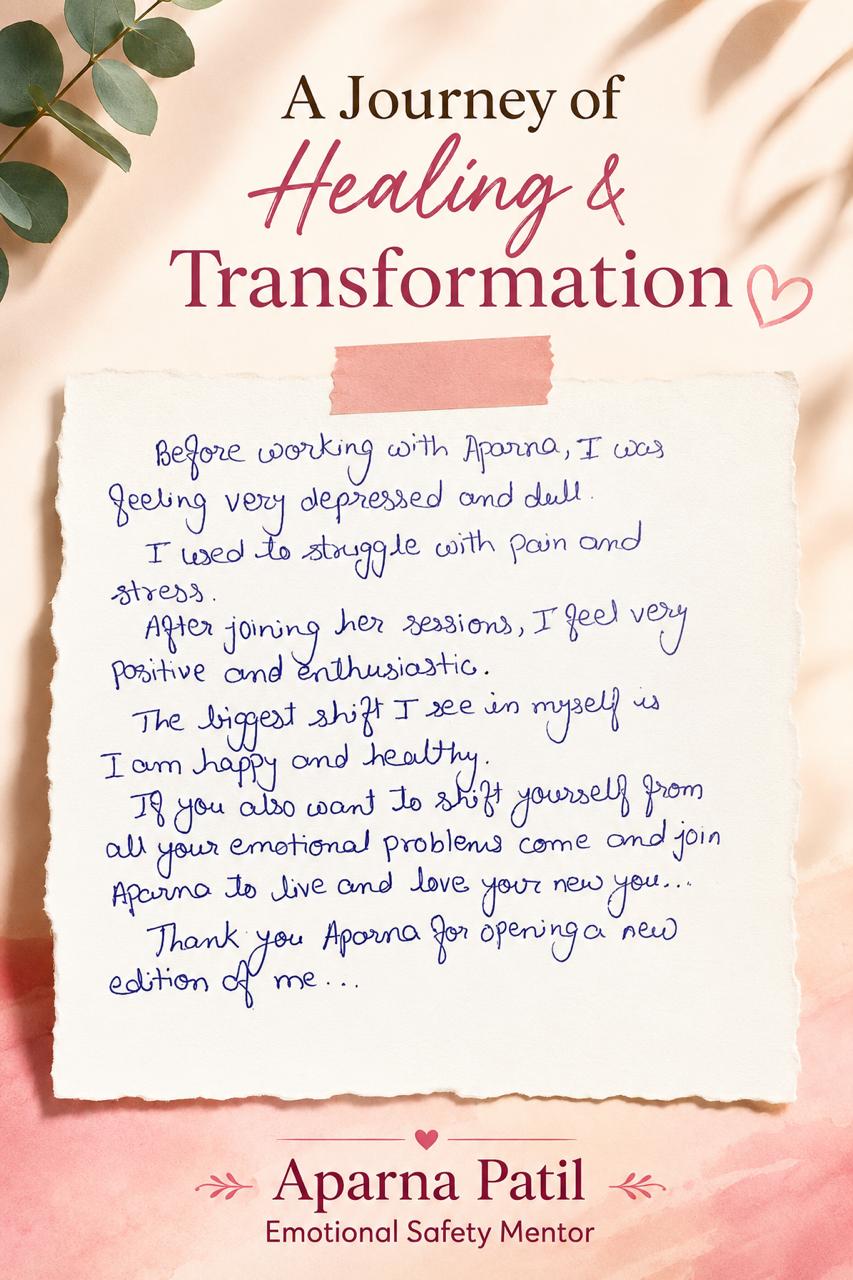 A Journey of
Healing &
Transformation
Before working with Aparna, I was
feeling very depressed and dull.
I used to struggle with pain and
stress.
After joining her sessions, I feel very
positive and enthusiastic.
The biggest shift I see in myself is
I am happy and healthy.
If you also want to shift yourself from
all your emotional problems come and join
Aparna to live and love your new you...
Thank you Aparna for opening a new
edition of me...
Aparna Patil
Emotional Safety Mentor